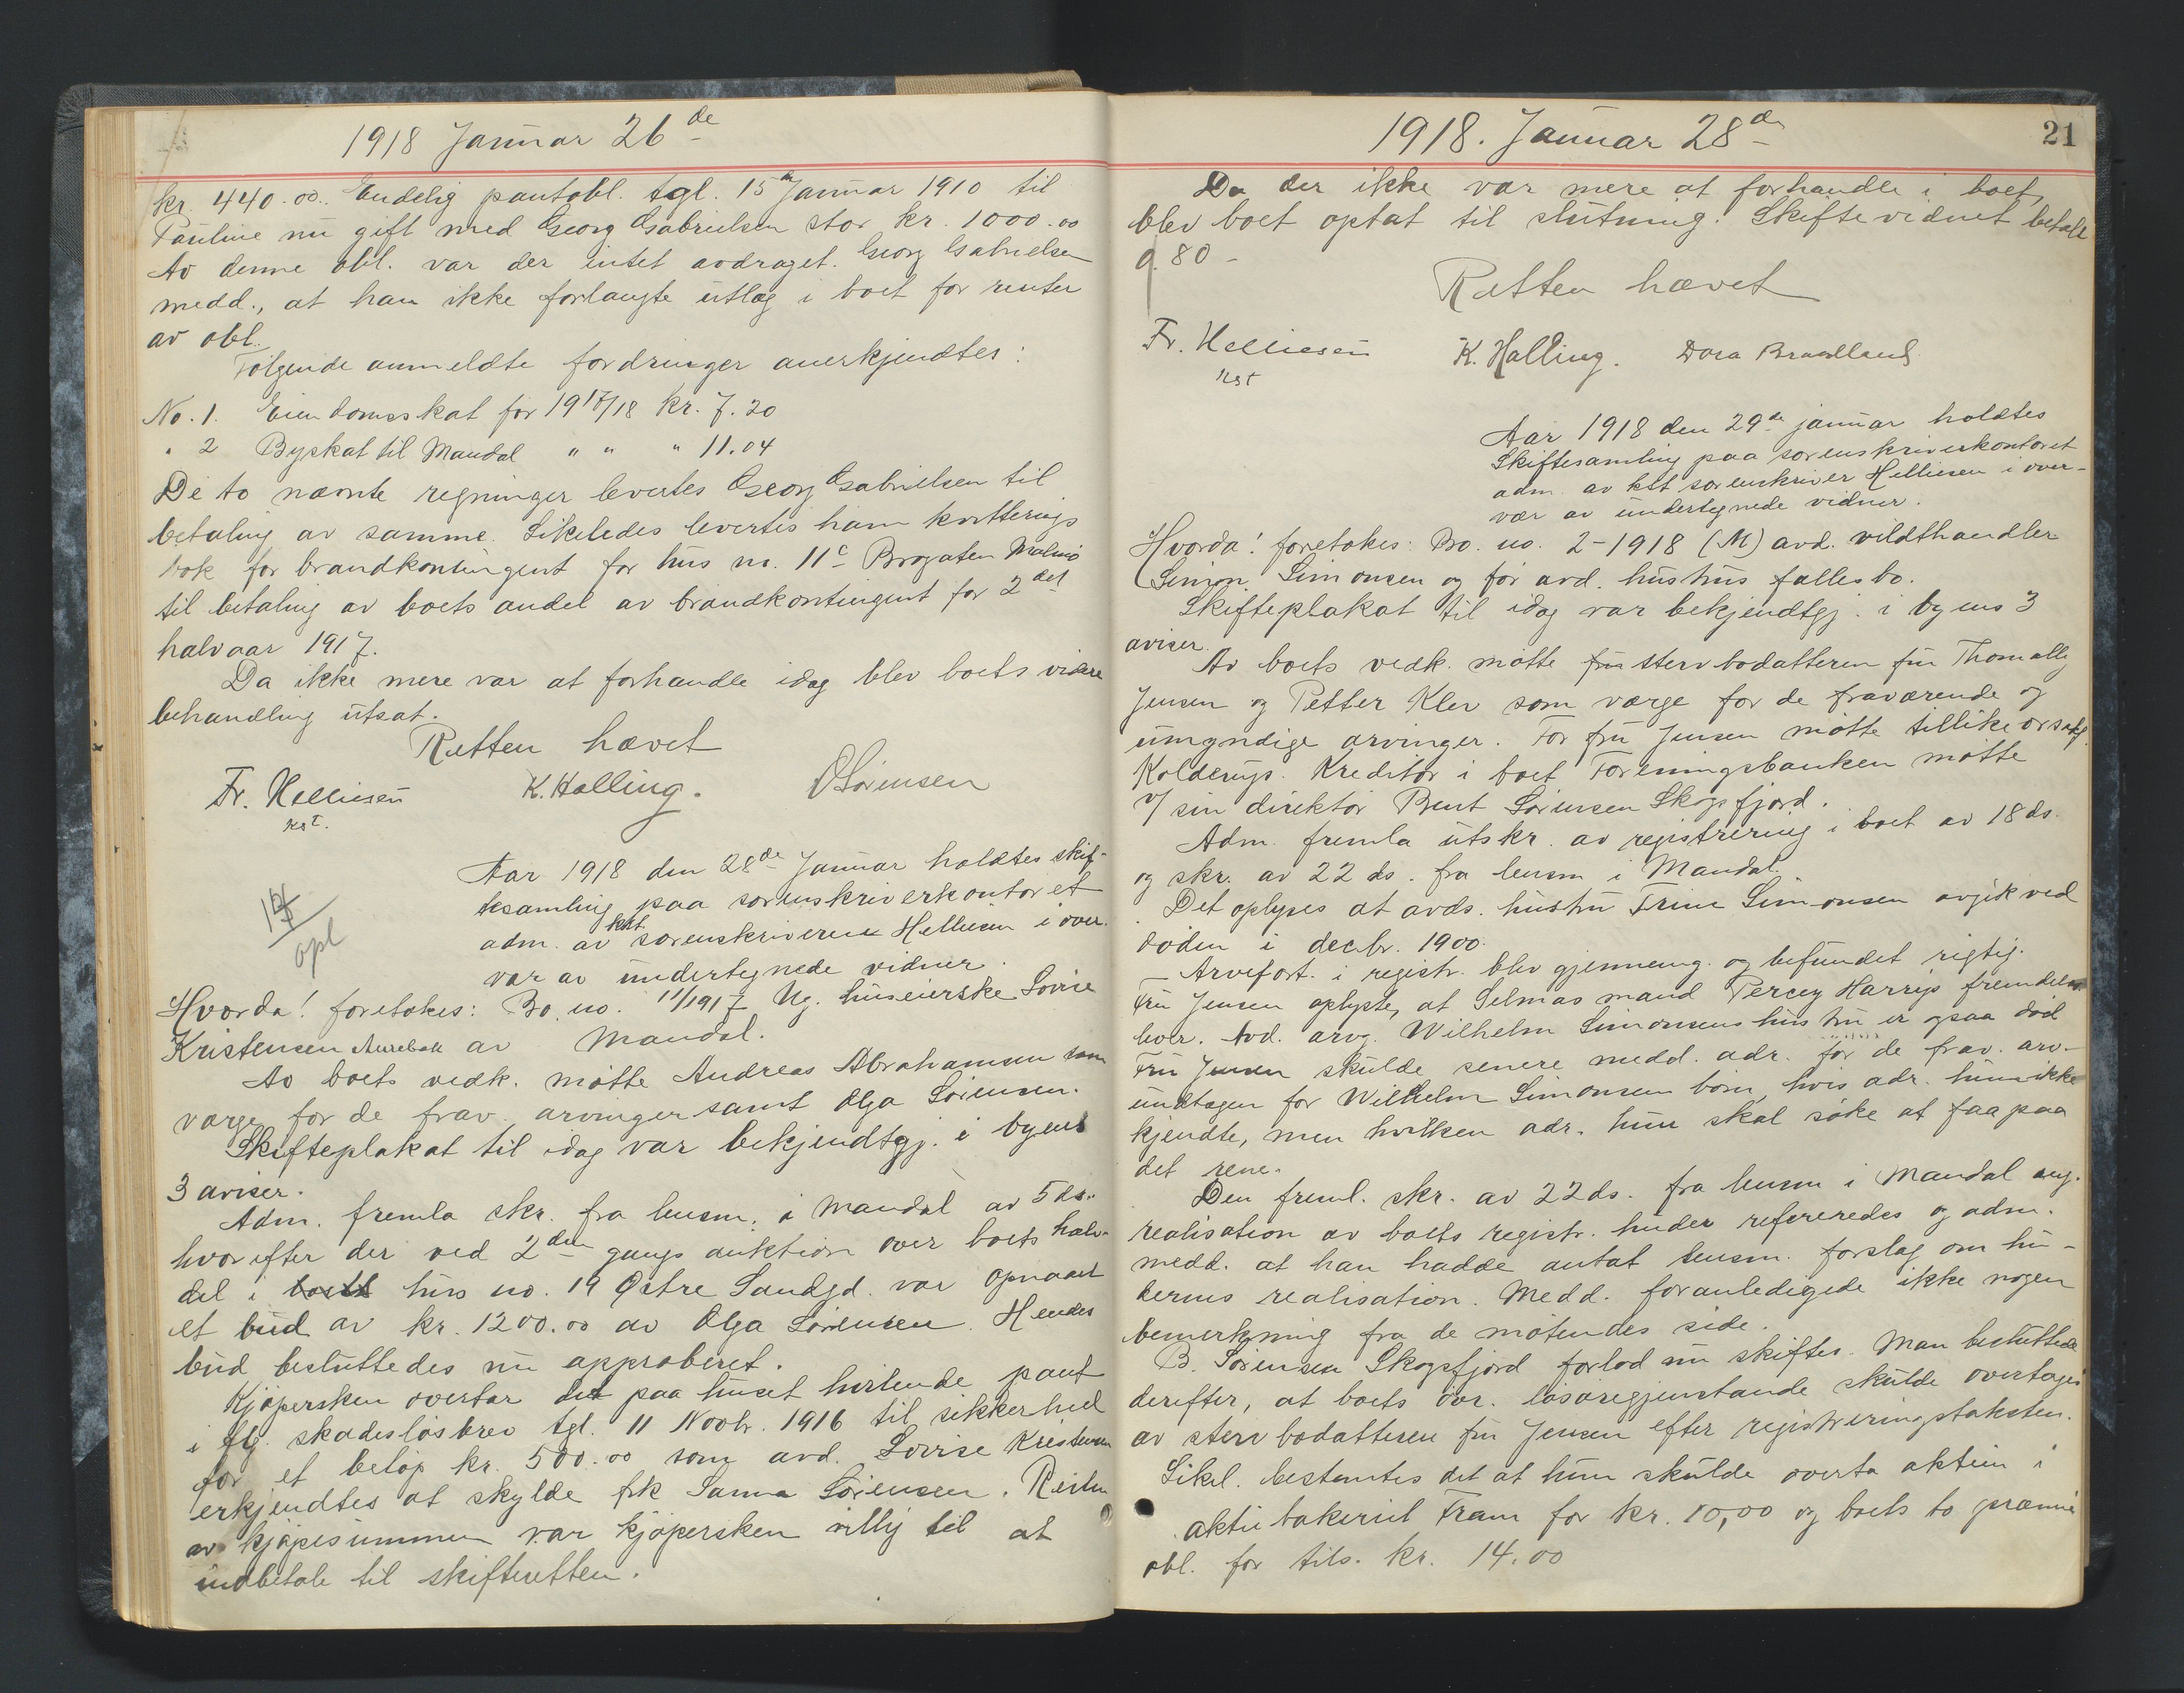 1918 Januar 26de
kr. 440.00. Endelig pantobl. tgl. 15de Januar 1910 til
Pauline nu gift med Georg Gabrielsen stor kr. 1000.00
Av denne obl. var der intet avdraget. Georg Gabrielsen
medd., at han ikke forlangte utlæg i boet for renter
av obl.
Følgende anmeldte fordringer anerkjendtes:
No. 1. Eiendomsskat for 1917/18 kr. 7.20
" 2 Byskat til Mandal " " " 11.04
De to nævnte regninger levertes Georg Gabrielsen til
betaling av samme. Likeledes levertes ham kvitterings
bok for brandkontingent for hus no. 11c Brogaten Malmø
til betaling av boets andel av brandkontingent for 2det
halvaar 1917.
Da ikke mere var at forhandle idag blev boets videre
behandling utsat.
Retten hævet
Fr. Helliesen K. Halling. O Sørensen
kst.
Aar 1918 den 28de Januar holdtes skif-
tesamling paa sorenskriverkontoret
adm. av kst sorenskriveren Helliesen i over-
vær av undertegnede vidner.
opl
Hvorda! foretokes: Bo no. 11/1917 Ug. huseierske Lovise
Kristensen Aurebæk av Mandal.
Av boets vedk. møtte Andreas Abrahamsen som
værge for de frav. arvinger samt Olga Sørensen.
Skifteplakat til idag var bekjendtgj. i byens
3 aviser.
Adm. fremla skr. fra lensm. i Mandal av 5 ds.
hvorefter der ved 2den gangs auktion over boets halv-
del i boets hus no. 19 Østre Sandgd. var opnaaet
et bud av kr. 1200.00 av Olga Sørensen. Hendes
bud besluttedes nu approberet.
Kjøpersken overtar det paa huset heftende pant
i flg. skadesløsbrev tgl. 11 Novbr. 1916 til sikkerhed
for et beløp kr. 500.00 som avd. Lovise Kristensen
erkjendtes at skylde frk Sanna Sørensen. Resten
av kjøpesummen var kjøpersken villig til at
indbetale til skifteretten.
1918. Januar 28de
21
Da der ikke var mere at forhandle i boet,
blev boet optat til slutning. Skiftevidnet betalt
9.80 -
Retten hævet
Fr. Helliesen K. Halling. Dora Braadland
kst
Aar 1918 den 29de januar holdtes
Skiftesamling paa sorenskriverkontoret
adm. av kst sorenskriver Helliesen i over-
vær av undertegnede vidner.
Hvorda! foretokes: Bo. no. 2-1918 (M) avd. vildthandler
Simon Simonsen og før avd. hustrus fællesbo.
Skifteplakat til idag var bekjendtgj. i byens 3
aviser.
Av boets vedk. møtte fru stervbodatteren fru Thomally
Jensen og Petter Klev som værge for de fraværende og
umyndige arvinger. For fru Jensen møtte tillike orsakf.
Kolderup. Kreditor i boet Foreningsbanken møtte
v/ sin direktør Bent Sørensen Skogsfjord.
Adm. fremla utskr. av registrering i boet av 18 ds.
og skr. av 22 ds. fra lensm i Mandal.
Det oplyses at avds. hustru Trine Simonsen avgik ved
døden i decbr. 1900.
Arvefort. i registr. blev gjennemg. og befundet rigtig.
Fru Jensen oplyste, at Selmas mand Percey Harrys fremdeles
lever. Avd. arvg. Wilhelm Simonsens hustru er ogsaa død
Fru Jensen skulde senere medd. adr. for de frav. arv-
undtagen for Wilhelm Simonsens børn, hvis adr. hun ikke
kjendte, men hvilken adr. hun skal søke at faa paa
det rene.
Den freml. skr. av 22 ds. fra lensm i Mandal ang.
realisation av boets registr. huder refereredes og adm.
medd. at han hadde antat lensm. forslag om hu-
dernes realisation. Medd. foranledigede ikke nogen
bemerkning fra de møtendes side.
B. Sørensen Skogsfjord forlod nu skiftes. Man besluttede
derefter, at boets øvr. løsøregjenstande skulde overtages
av stervbodatteren fru Jensen efter registreringstaksten.
Likel. bestemtes det at hun skulde overta aktien i
aktiebakeriet Fram for kr. 10,00 og boets to præmie
obl. for tils. kr. 14.00